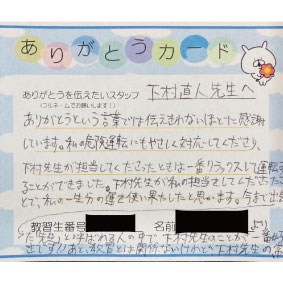 ありがとうカード
ありがとうを伝えたいスタッフ
(フルネームでお願いします!)
下村直人先生へ
ありがとうという言葉だけでは伝えきれないほどに感謝
しています。私の危険運転にもやさしく対応してくださり、
下村先生が担当してくださったときは一番リラックスして運転す
ることができました。下村先生が私の担当をしてくださった
とで、私の一生分の運を使い果たしたと思います。今まで出
教習生番号
名前
より
た"先生"と呼ばれる人の中で下村先生のことが一番